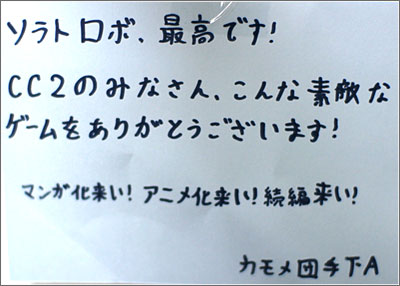 ソラトロボ、最高です!
CC2のみなさん、こんな素敵な
ゲームをありがとうございます!
マンガ化来い!アニメ化来い!続編来い!
カモメ団手下A